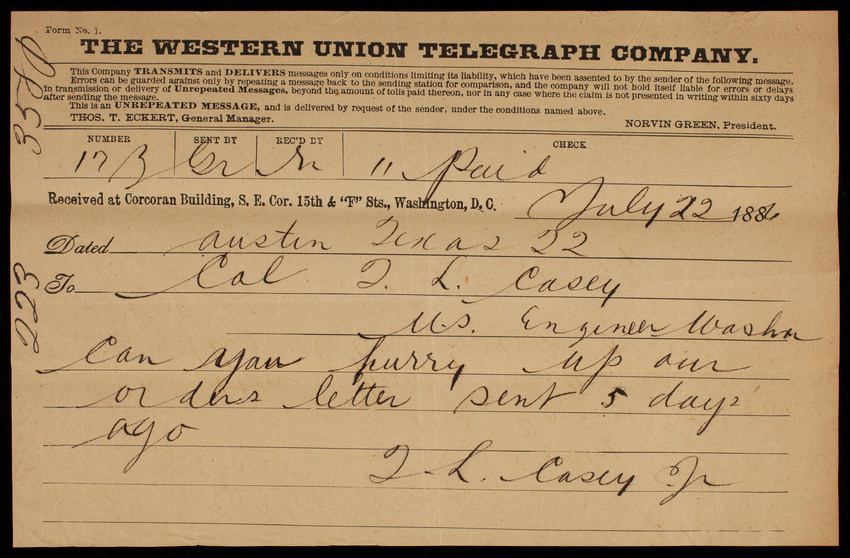 Form No. 1.
THE WESTERN UNION TELEGRAPH COMPANY.
This Company TRANSMITS and DELIVERS messages only on conditions limiting its liability, which have been assented to by the sender of the following message.
Errors can be guarded against only by repeating a message back to the sending station for comparison, and the company will not hold itself liable for errors or delays
in transmission or delivery of Unrepeated Messages, beyond the amount of tolls paid thereon, nor in any case where the claim is not presented in writing within sixty days
after sending the message.
This is an UNREPEATED MESSAGE, and is delivered by request of the sender, under the conditions named above.
THOS. T. ECKERT, General Manager. NORVIN GREEN, President.
NUMBER SENT BY REC'D BY CHECK
173 Gr 11 Paid
Received at Corcoran Building, S. E. Cor. 15th & "F" Sts., Washington, D. C. July 22 1886
Dated Austin Texas 22
To Col T. L. Casey
U.S. Engineer Washn
Can you hurry up our
orders letter sent 5 days
ago
T L. Casey Jr
223